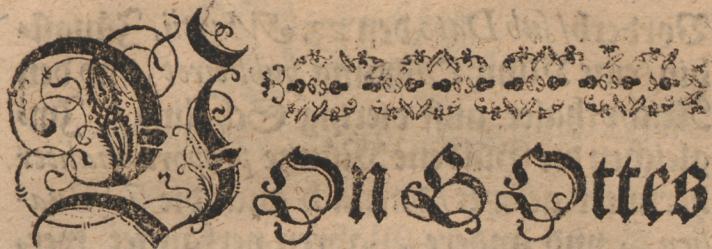 VOn GOttes